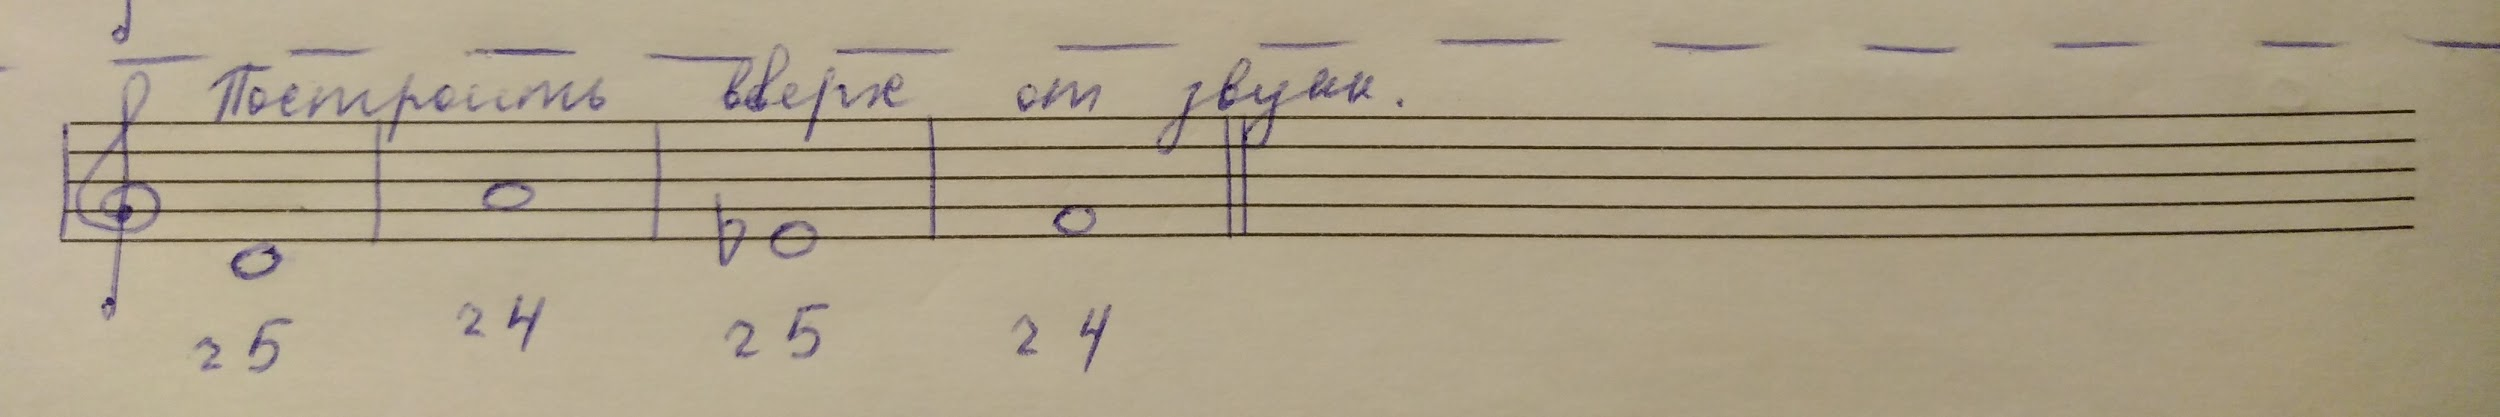 Построить вверх от звука.
ч5 ч4 ч5 ч4